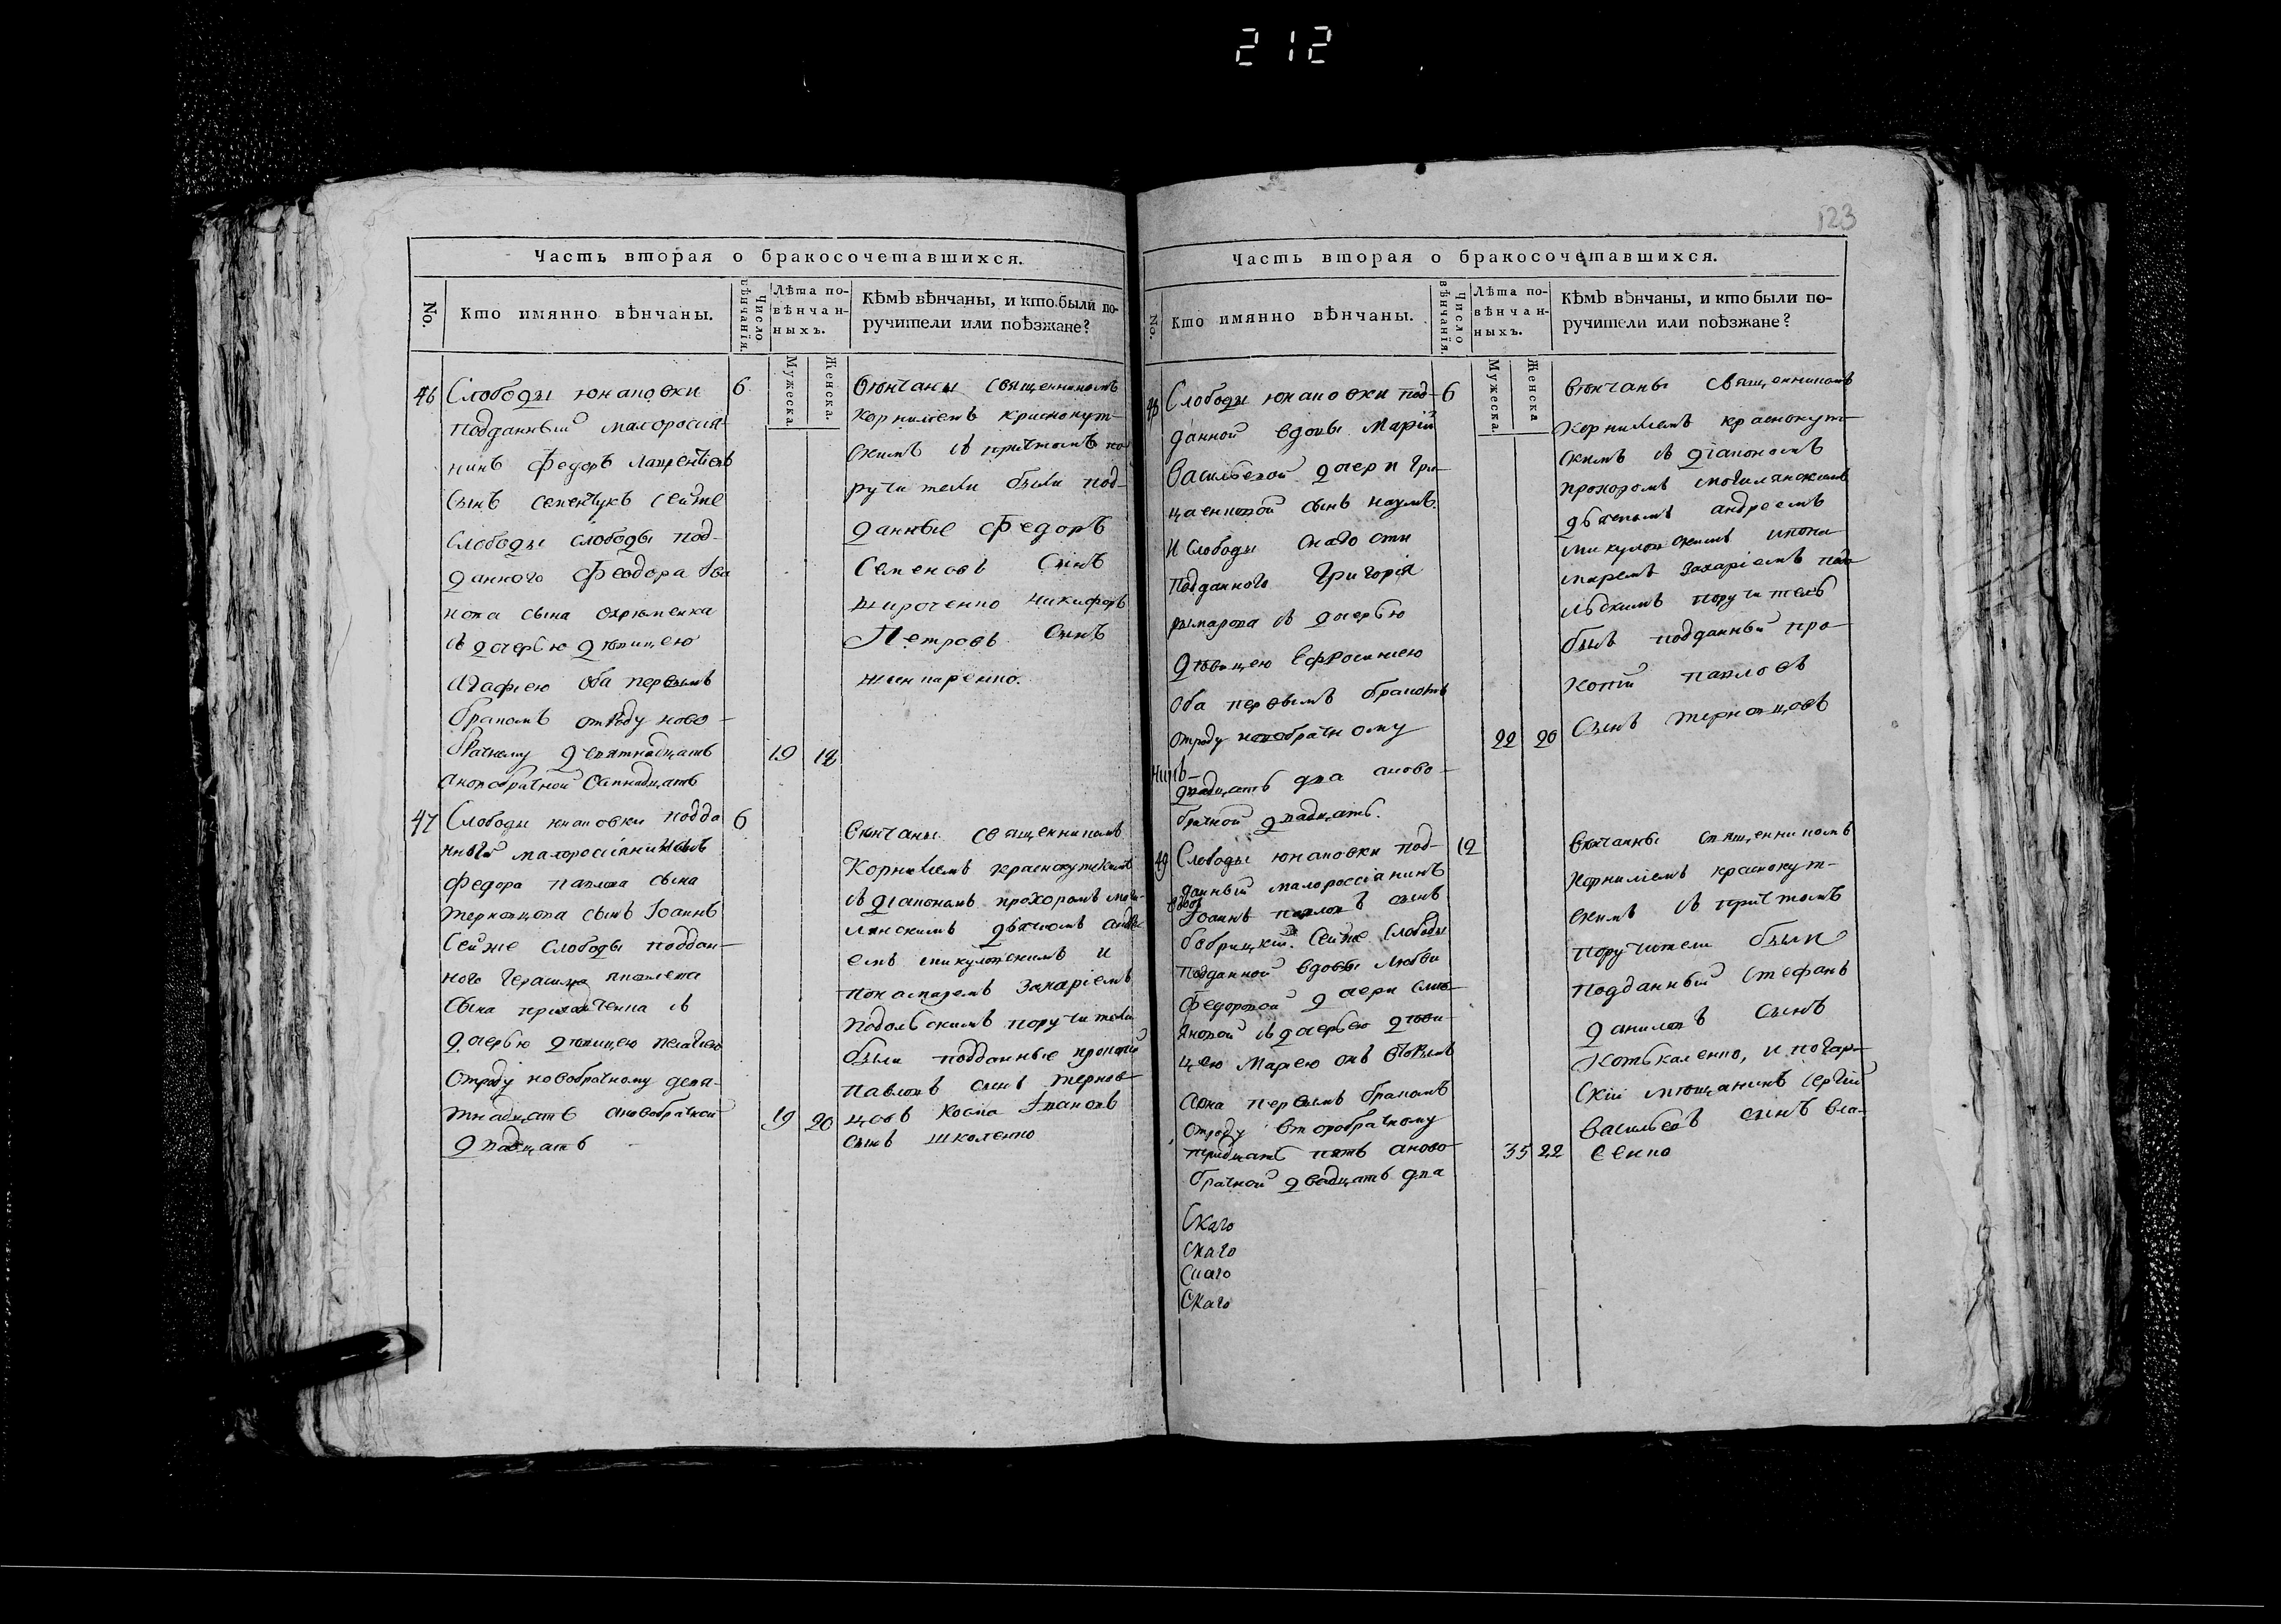 212
123
Часть вторая о бракосочетавшихся.
No.
Кто имянно вѣнчаны.
Число вѣнчанія.
Лѣта по-
вѣнчан-
ныхъ.
Мужеска.
Женска.
Кѣмъ вѣнчаны, и кто были по-
ручители или поѣзжане?
46 Слободы юнаповки 6
подданный малоросия-
нинъ Федоръ
сынъ Семенчукъ сейже
слободы слободы под-
данного Феодора Ива
нова сына
съ дочерью дѣвицею
Агафиею оба первымъ
бракомъ отроду ново-
брачному девятнадцать 19 18
вѣнчаны священникомъ
Корнилиемъ краснокут-
скимъ съ причтомъ по
ручители были под-
данные Федоръ
Семеновъ сынъ
никифоръ
Петровъ сынъ
47 Слободы юнаповки подда 6
нный малоросіянинъ
Федора павлова сына
терновцова сынъ Іоаннъ
Сейже слободы поддан-
ного герасима
сына съ
дочерью дѣвицею
отроду новобрачному девя-
тнадцать ановобрачной 19 20
двадцать
вѣнчаны священникомъ
Корнилиемъ краснокутскимъ
съ діакономъ прохоромъ моги-
лянскимъ дьячкомъ андре-
емъ микуловскимъ и
понамаремъ захаріемъ
подольскимъ поручители
были подданные прокопій
павловъ сынъ тернов-
цовъ косма Ивановъ
сынъ школенко
Часть вторая о бракосочетавшихся.
No.
Кто имянно вѣнчаны.
Число вѣнчанія.
Лѣта по-
вѣнчан-
ныхъ.
Мужеска.
Женска
Кѣмъ вѣнчаны, и кто были по-
ручители или поѣзжане?
48 Слободы юнаповки под- 6
данной вдовы Маріи
Васильевой дочери гри-
ценковой сынъ наумъ.
И слободы
подданного Григорія
рымарова съ дочерью
дѣвицею Ефросиниею
оба первымъ бракомъ
отроду новобрачному 22 20
двадцать два аново-
брачной двадцать.
вѣнчаны священникомъ
корнилиемъ краснокут-
скимъ съ діакономъ
прохоромъ могилянскимъ
дьячкомъ андреемъ
микуловскимъ ипона
маремъ захаріемъ подо
льскимъ поручитель
былъ подданный про-
копій павловъ
сынъ терновцовъ
49 Слободы юнаповки под- 12
данный малороссіанинъ
вдовъ
Іоаннъ павловъ сынъ
бобрицкій. Сейже слободы
подданной вдовы Любви
Федоровой дочери
съ дочерью дѣви-
цею Мариею онъ вторымъ
аона первымъ бракомъ
отроду второбрачному
тридцать пять аново- 35 22
брачной двадцать два
вѣнчанны священникомъ
корниліемъ краснокут-
скимъ съ причтомъ
поручители были
подданный стефанъ
даниловъ сынъ
котькаленко, и
скій мѣщанинъ сергій
Васильевъ сынъ вла-
сенко
Скаго
скаго
скаго
Скаго